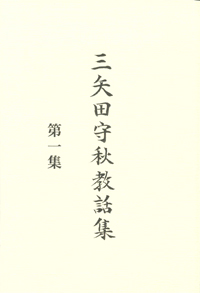 三矢田守秋教話集
第一集